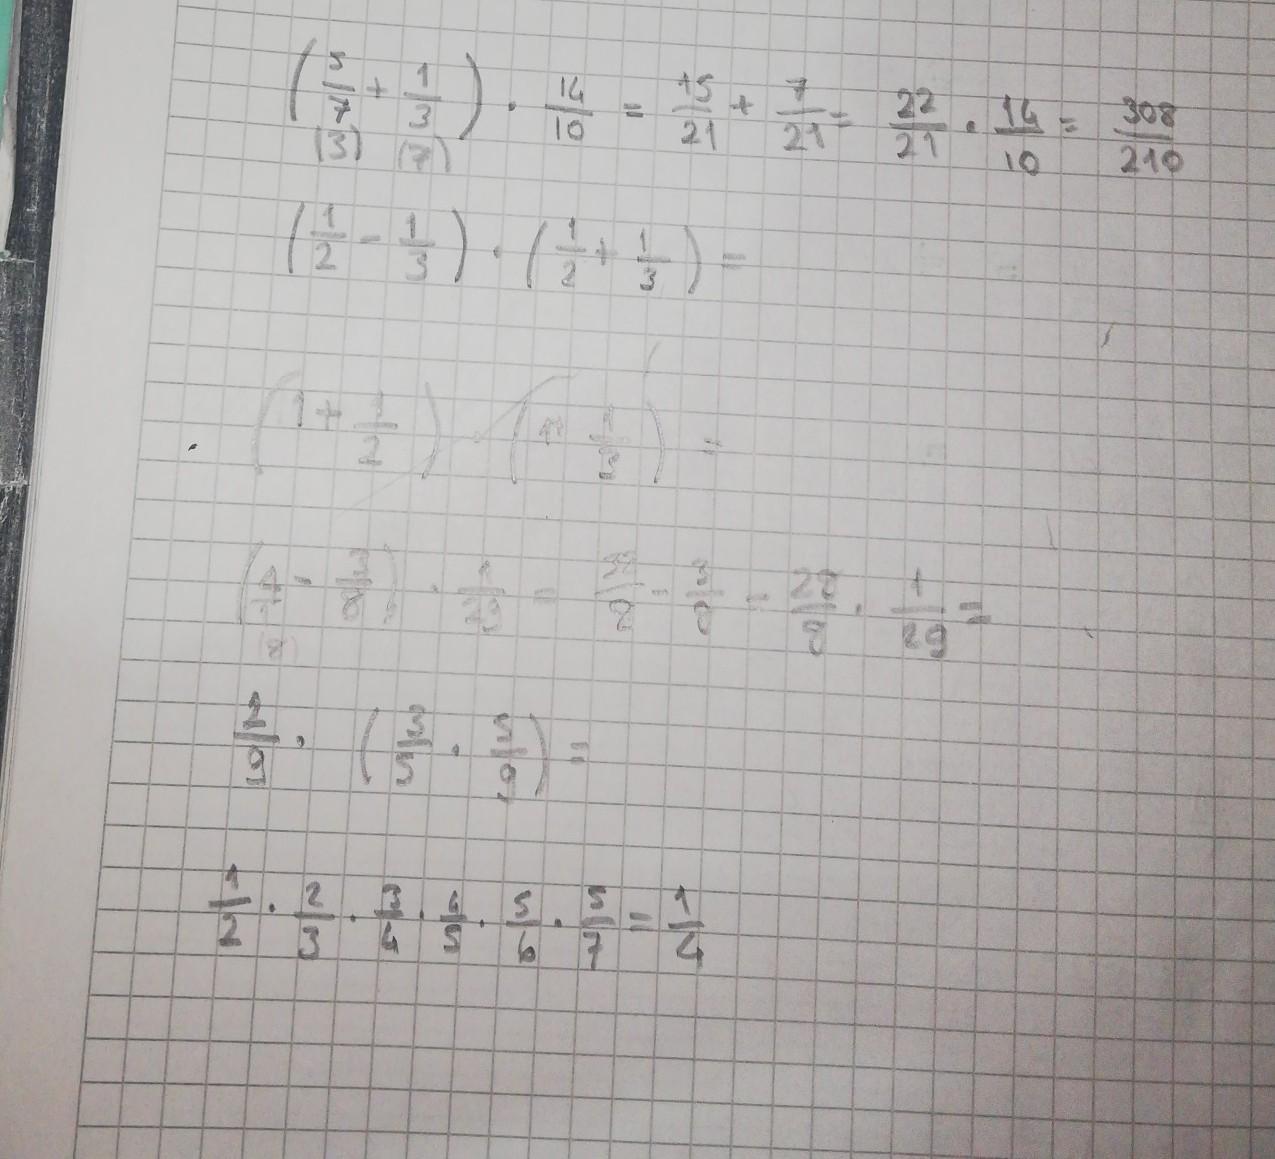 (5/7 + 1/3) · 14/10 = 15/21 + 7/21 = 22/21 · 14/10 = 308/210
(3) (7)
(1/2 - 1/3) · (1/2 + 1/3) =
(1 + 1/2) · ( 1/3) =
(4/1 - 3/8) · 1/29 = 32/8 - 3/8 = /8 · 1/29 =
(8)
2/9 · (3/5 · 5/9) =
1/2 · 2/3 · 3/4 · 4/5 · 5/6 · 5/7 = 1/4